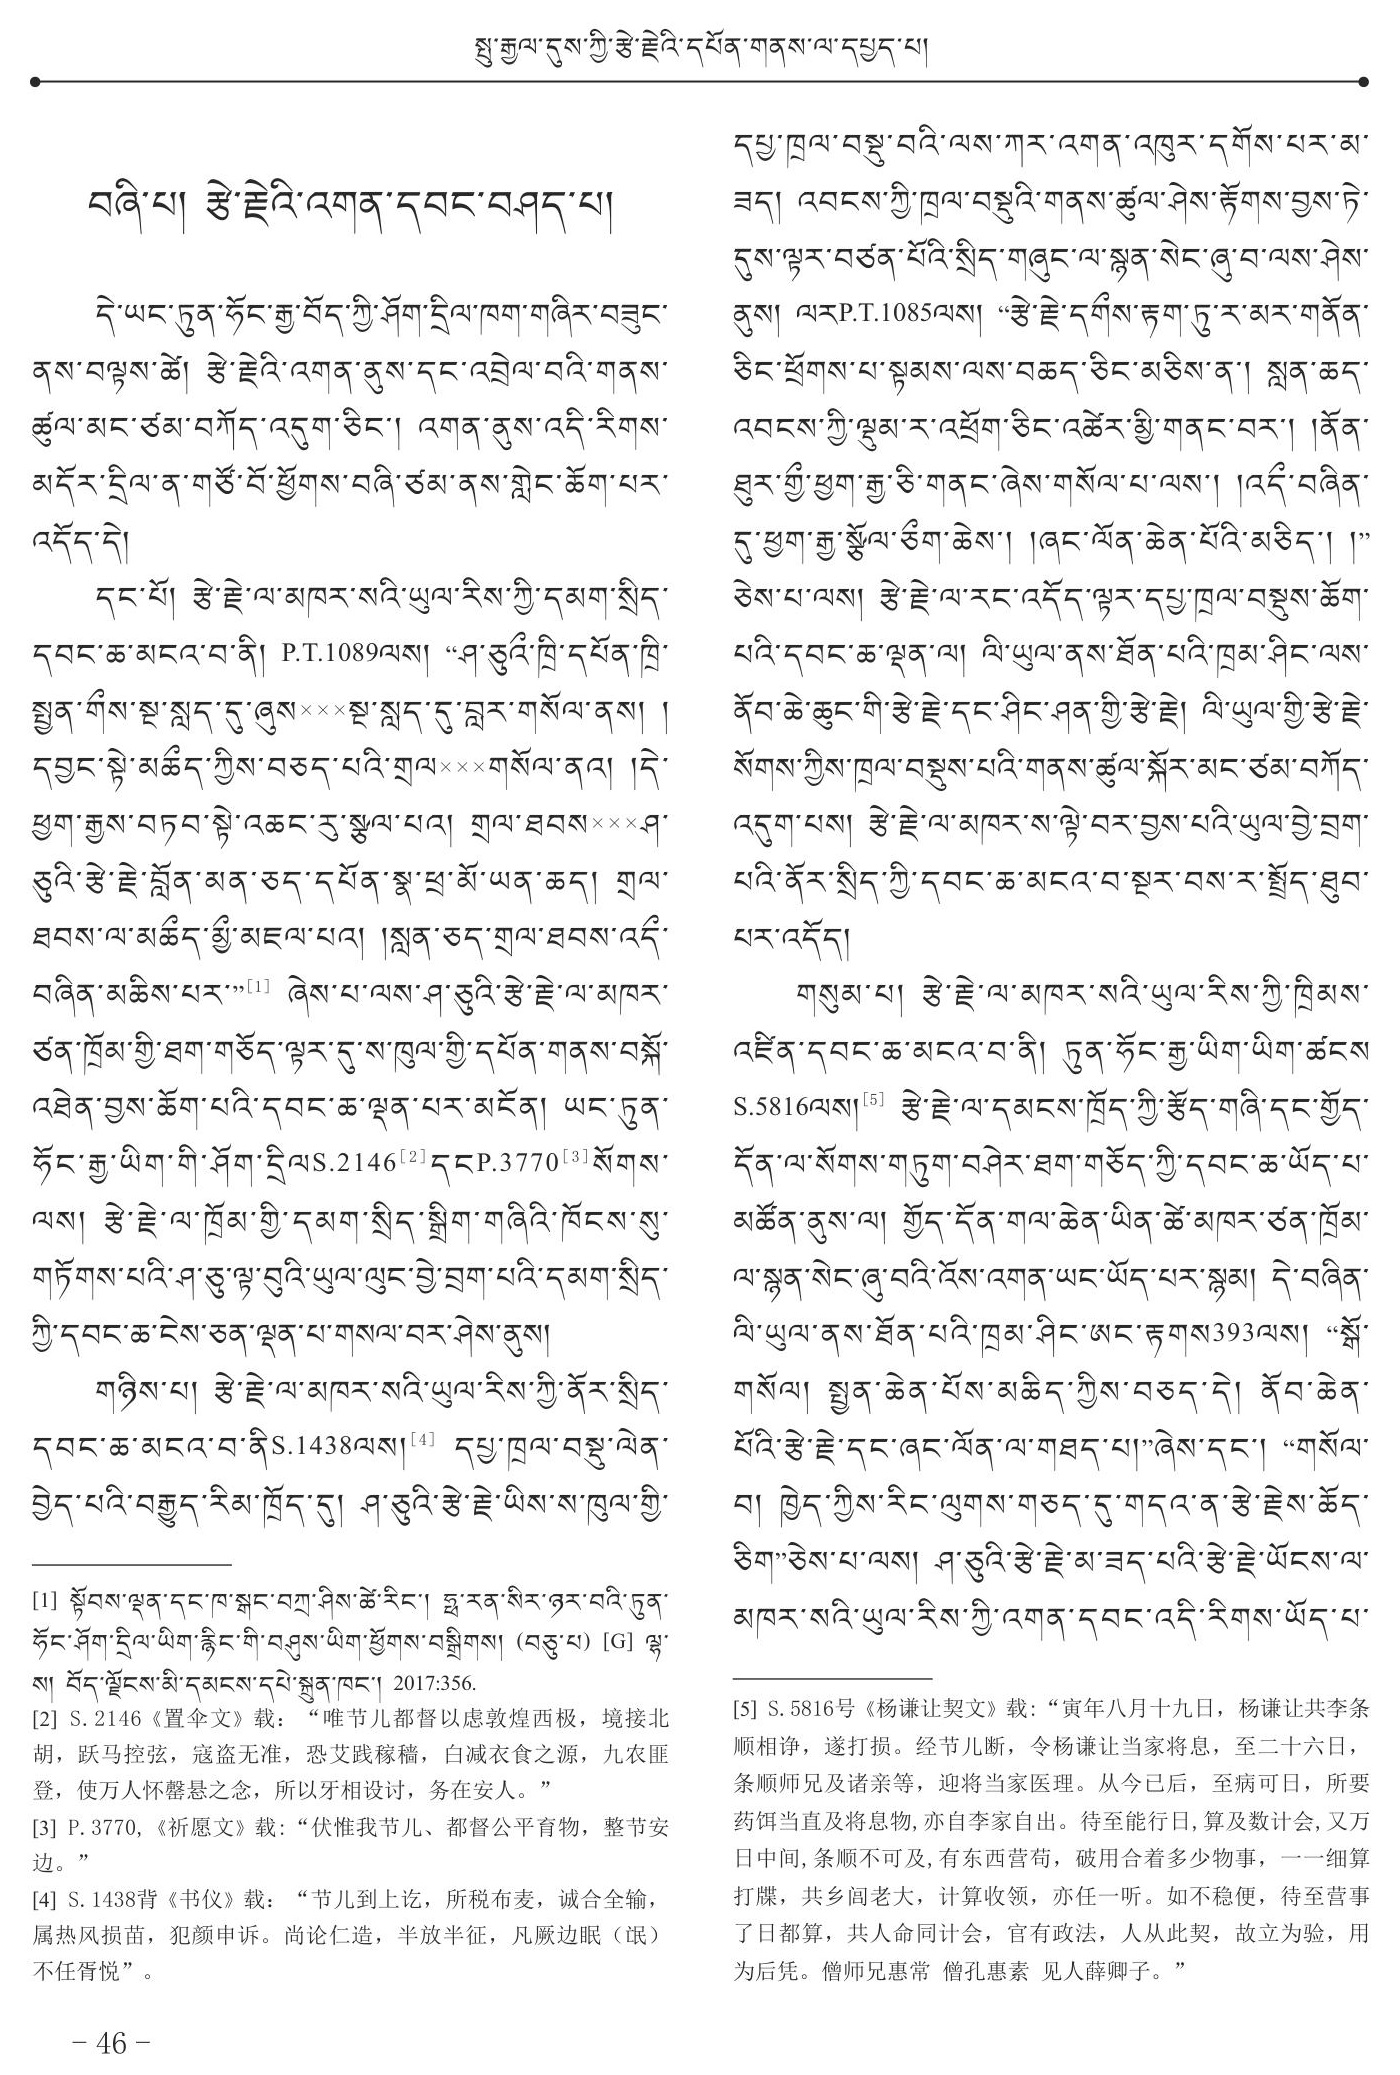 སྤུ་རྒྱལ་དུས་ཀྱི་རྩེ་རྗེའི་དཔོན་གནས་ལ་དཔྱད་པ།
བཞི་པ། རྩེ་རྗེའི་འགན་དབང་བཤད་པ།
དེ་ཡང་ཏུན་ཧོང་རྒྱ་བོད་ཀྱི་ཤོག་དྲིལ་ཁག་གཞིར་བཟུང་
ནས་བལྟས་ཚེ། རྩེ་རྗེའི་འགན་ནུས་དང་འབྲེལ་བའི་གནས་
ཚུལ་མང་ཙམ་བཀོད་འདུག་ཅིང་། འགན་ནུས་འདི་རིགས་
མདོར་དྲིལ་ན་གཙོ་བོ་ཕྱོགས་བཞི་ཙམ་ནས་གླེང་ཆོག་པར་
འདོད་དེ།
དང་པོ། རྩེ་རྗེ་ལ་མཁར་སའི་ཡུལ་རིས་ཀྱི་དམག་སྲིད་
དབང་ཆ་མངའ་བ་ནི། P.T.1089ལས། “ཤ་ཅུའི་ཁྲི་དཔོན་ཁྲི་
སྤྱན་གཱིས་སྔ་སླད་དུ་ཞུས×××སྔ་སླད་དུ་བླར་གསོལ་ནས། །
དབྱང་སྟེ་མཆྀད་ཀྱིས་བཅད་པའི་གྲལ×××གསོལ་ནའ། །དེ་
ཕྱག་རྒྱས་བཏབ་སྟེ་འཆང་རུ་སྩལ་པའ། གྲལ་ཐབས×××ཤ་
ཅུའི་རྩེ་རྗེ་བློན་མན་ཅད་དཔོན་སྣ་ཕྲ་མོ་ཡན་ཆད། གྲལ་
ཐབས་ལ་མཆྀད་མྱྀ་མཇལ་པའ། །སླན་ཅད་གྲལ་ཐབས་འདྀ་
བཞིན་མཆིས་པར་”[1] ཞེས་པ་ལས་ཤ་ཅུའི་རྩེ་རྗེ་ལ་མཁར་
ཙན་ཁྲོམ་གྱི་ཐག་གཅོད་ལྟར་དུ་ས་ཁུལ་གྱི་དཔོན་གནས་བསྐོ་
འཐེན་བྱས་ཆོག་པའི་དབང་ཆ་ལྡན་པར་མངོན། ཡང་ཏུན་
ཧོང་རྒྱ་ཡིག་གི་ཤོག་དྲིལS.2146[2]དངP.3770[3]སོགས་
ལས། རྩེ་རྗེ་ལ་ཁྲོམ་གྱི་དམག་སྲིད་སྒྲིག་གཞིའི་ཁོངས་སུ་
གཏོགས་པའི་ཤ་ཅུ་ལྟ་བུའི་ཡུལ་ལུང་བྱེ་བྲག་པའི་དམག་སྲིད་
ཀྱི་དབང་ཆ་ངེས་ཅན་ལྡན་པ་གསལ་བར་ཤེས་ནུས།
གཉིས་པ། རྩེ་རྗེ་ལ་མཁར་སའི་ཡུལ་རིས་ཀྱི་ནོར་སྲིད་
དབང་ཆ་མངའ་བ་ནིS.1438ལས།[4] དཔྱ་ཁྲལ་བསྡུ་ལེན་
བྱེད་པའི་བརྒྱུད་རིམ་ཁྲོད་དུ། ཤ་ཅུའི་རྩེ་རྗེ་ཡིས་ས་ཁུལ་གྱི་
[1] སྟོབས་ལྡན་དང་ཁ་སྒང་བཀྲ་ཤིས་ཚེ་རིང་། ཧྥ་རན་སིར་ཉར་བའི་ཏུན་
ཧོང་ཤོག་དྲིལ་ཡིག་རྙིང་གི་བཤུས་ཡིག་ཕྱོགས་བསྒྲིགས། (བཅུ་པ) [G] ལྷ་
ས། བོད་ལྗོངས་མི་དམངས་དཔེ་སྐྲུན་ཁང་། 2017:356.
[2] S.2146《置伞文》载：“唯节儿都督以虑敦煌西极，境接北
胡，跃马控弦，寇盗无准，恐艾践稼穑，白减衣食之源，九农匪
登，使万人怀罄悬之念，所以牙相设讨，务在安人。”
[3] P.3770,《祈愿文》载:“伏惟我节儿、都督公平育物，整节安
边。”
[4] S.1438背《书仪》载：“节儿到上讫，所税布麦，诚合全输，
属热风损苗，犯颜申诉。尚论仁造，半放半征，凡厥边眠（氓）
不任胥悦”。
དཔྱ་ཁྲལ་བསྡུ་བའི་ལས་ཀར་འགན་འཁུར་དགོས་པར་མ་
ཟད། འབངས་ཀྱི་ཁྲལ་བསྡུའི་གནས་ཚུལ་ཤེས་རྟོགས་བྱས་ཏེ་
དུས་ལྟར་བཙན་པོའི་སྲིད་གཞུང་ལ་སྙན་སེང་ཞུ་བ་ལས་ཤེས་
ནུས། ལརP.T.1085ལས། “རྩེ་རྗེ་དགྀས་རྟག་ཏུ་ར་མར་གནོན་
ཅིང་ཕྲོགས་པ་སྟམས་ལས་བཆད་ཅིང་མཅིས་ན་། སླན་ཆད་
འབངས་ཀྱི་ལྡུམ་ར་འཕྲོག་ཅིང་འཚེར་མྱི་གནང་བར་། །ནོན་
ཐུར་གྱྀ་ཕྱག་རྒྱ་ཅི་གནང་ཞེས་གསོལ་པ་ལས་། །འདྀ་བཞིན་
དུ་ཕྱག་རྒྱ་སྩོལ་ཅྀག་ཆེས་། །ཞང་ལོན་ཆེན་པོའི་མཅིད་། །”
ཅེས་པ་ལས། རྩེ་རྗེ་ལ་རང་འདོད་ལྟར་དཔྱ་ཁྲལ་བསྡུས་ཆོག་
པའི་དབང་ཆ་ལྡན་ལ། ལི་ཡུལ་ནས་ཐོན་པའི་ཁྲམ་ཤིང་ལས་
ནོབ་ཆེ་ཆུང་གི་རྩེ་རྗེ་དང་ཤིང་ཤན་གྱི་རྩེ་རྗེ། ལི་ཡུལ་གྱི་རྩེ་རྗེ་
སོགས་ཀྱིས་ཁྲལ་བསྡུས་པའི་གནས་ཚུལ་སྐོར་མང་ཙམ་བཀོད་
འདུག་པས། རྩེ་རྗེ་ལ་མཁར་ས་ལྟེ་བར་བྱས་པའི་ཡུལ་བྱེ་བྲག་
པའི་ནོར་སྲིད་ཀྱི་དབང་ཆ་མངའ་བ་སྔར་བས་ར་སྤྲོད་ཐུབ་
པར་འདོད།
གསུམ་པ། རྩེ་རྗེ་ལ་མཁར་སའི་ཡུལ་རིས་ཀྱི་ཁྲིམས་
འཛིན་དབང་ཆ་མངའ་བ་ནི། ཏུན་ཧོང་རྒྱ་ཡིག་ཡིག་ཚངས
S.5816ལས།[5] རྩེ་རྗེ་ལ་དམངས་ཁྲོད་ཀྱི་རྩོད་གཞི་དང་གྱོད་
དོན་ལ་སོགས་གཏུག་བཤེར་ཐག་གཅོད་ཀྱི་དབང་ཆ་ཡོད་པ་
མཚོན་ནུས་ལ། གྱོད་དོན་གལ་ཆེན་ཡིན་ཚེ་མཁར་ཙན་ཁྲོམ་
ལ་སྙན་སེང་ཞུ་བའི་འོས་འགན་ཡང་ཡོད་པར་སྙམ། དེ་བཞིན་
ལི་ཡུལ་ནས་ཐོན་པའི་ཁྲམ་ཤིང་ཨང་རྟགས393ལས། “སྒོ་
གསོལ། སྤྱན་ཆེན་པོས་མཆིད་ཀྱིས་བཅད་དེ། ནོབ་ཆེན་
པོའི་རྩེ་རྗེ་དང་ཞང་ལོན་ལ་གཐད་པ།”ཞེས་དང་། “གསོལ་
བ། ཁྱེད་ཀྱིས་རིང་ལུགས་གཅད་དུ་གདའ་ན་རྩེ་རྗེས་ཆོད་
ཅིག”ཅེས་པ་ལས། ཤ་ཅུའི་རྩེ་རྗེ་མ་ཟད་པའི་རྩེ་རྗེ་ཡོངས་ལ་
མཁར་སའི་ཡུལ་རིས་ཀྱི་འགན་དབང་འདི་རིགས་ཡོད་པ་
[5] S.5816号《杨谦让契文》载:“寅年八月十九日，杨谦让共李条
顺相诤，遂打损。经节儿断，令杨谦让当家将息，至二十六日，
条顺师兄及诸亲等，迎将当家医理。从今已后，至病可日，所要
药饵当直及将息物,亦自李家自出。待至能行日,算及数计会,又万
日中间,条顺不可及,有东西营苟，破用合着多少物事，一一细算
打牒，共乡闾老大，计算收领，亦任一听。如不稳便，待至营事
了日都算，共人命同计会，官有政法，人从此契，故立为验，用
为后凭。僧师兄惠常 僧孔惠素 见人薛卿子。”
- 46 -